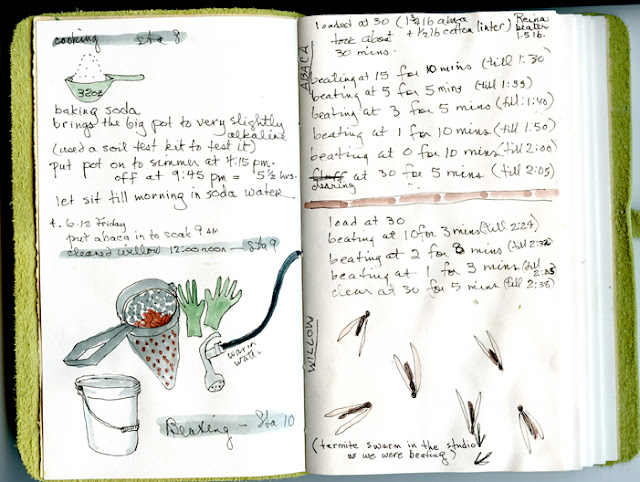 cooking Sta 8
32oz
baking soda
brings the big pot to very slightly
alkaline
(used a soil test kit to test it)
put pot on to simmer at 4:15 pm.
off at 9:45 pm = 5 1/2 hrs.
let sit till morning in soda water
6.12 Friday
put abaca in to soak 9 AM
cleaned willow 12:00 noon — Sta 9
warm
water
Beating — Sta 10
ABACA
loaded at 30 (1 3/4 lb abaca
took about + 1/2 lb cotton linter)
30 mins.
Reina
beater
1.5 lb.
beating at 15 for 10 mins (till 1:30
beating at 5 for 5 mins (till 1:35)
beating at 3 for 5 mins (till 1:40)
beating at 1 for 10 mins (till 1:50)
beating at 0 for 10 mins (till 2:00)
clearing at 30 for 5 mins (till 2:05)
WILLOW
load at 30
beating at 10 for 3 mins (till 2:24)
beating at 2 for 8 mins (till 2:32
beating at 1 for 3 mins (till
2:35)
clear at 30 for 5 mins (till 2:38)
(termite swarm in the studio
as we were beating)